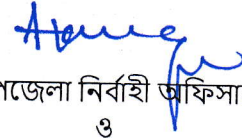 জেলা নির্বাহী অফিসা
ও